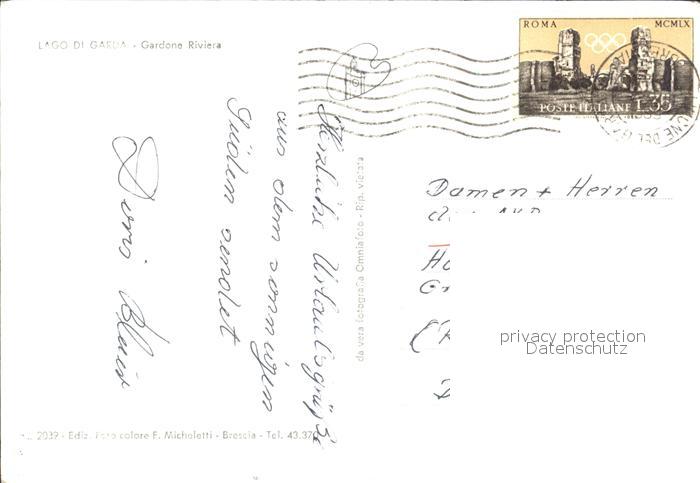 LAGO DI GARDA - Gardone Riviera
ROMA MCMLX
POSTE ITALIANE L.35
Herzliche Urlaubsgrüße
aus dem sonnigen
Süden sendet
Doris
da vera fotografia Omniafoto - Rip. vietata
Damen + Herren
privacy protection
Datenschutz
2039 - Ediz. Foto colore F. Micheletti - Brescia - Tel. 43.370